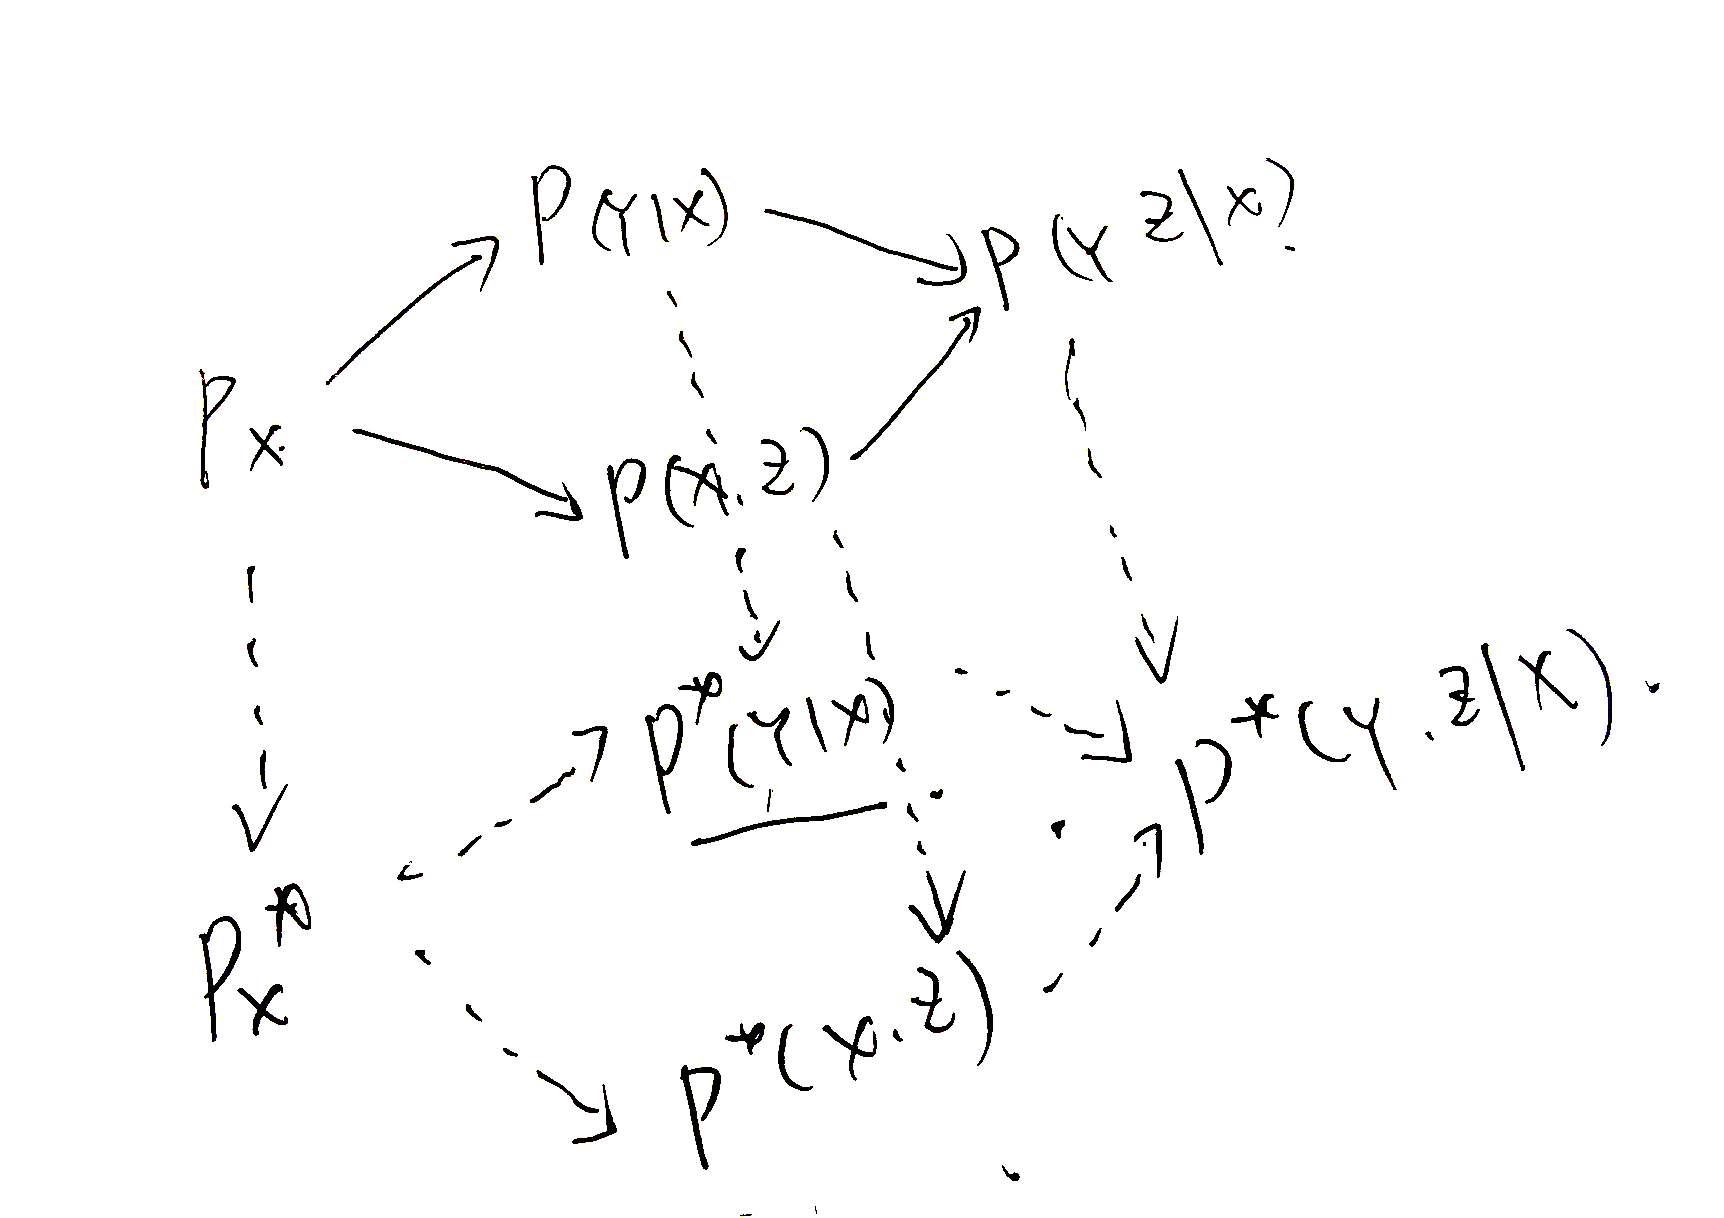 P(Y|X)
P(Y Z|X)
P_X
P(X.Z)
P*(Y|X)
P*(Y.Z|X).
P*_X
P*(X.Z)